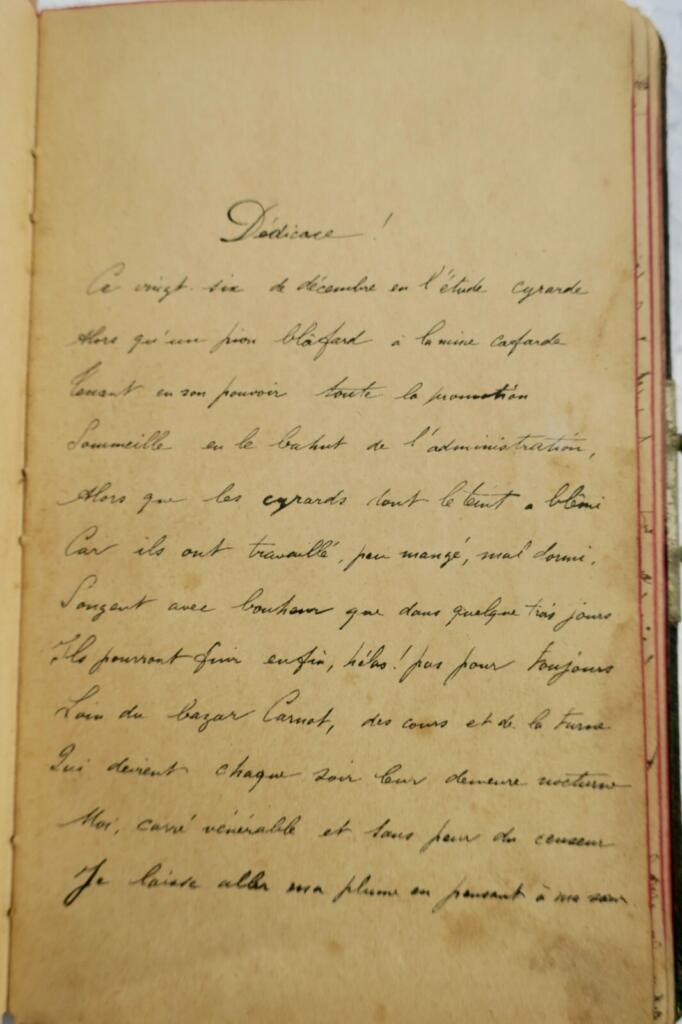 Dédicace !
Ce vingt-six de décembre en l'étude cyrarde
Alors qu'un pion blafard à la mine cafarde
Tenant en son pouvoir toute la promotion
Sommeille en le bahut de l'administration,
Alors que les cyrards dont le teint a blêmi
Car ils ont travaillé, peu mangé, mal dormi,
Songent avec bonheur que dans quelque trois jours
Ils pourront fuir enfin, hélas ! pas pour toujours
Loin du bazar Carnot, des cours et de la turne
Qui devient chaque soir leur demeure nocturne
Moi, carré vénérable et sans peur du censeur
Je laisse aller ma plume en pensant à ma sœur